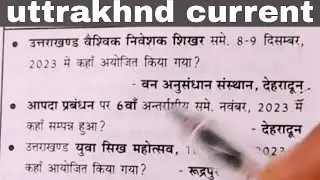 uttrakhnd current
उत्तराखण्ड वैश्विक निवेशक शिखर समे. 8-9 दिसम्बर,
2023 में कहाँ अयोजित किया गया?
- वन अनुसंधान संस्थान, देहरादून.
आपदा प्रबंधन पर 6वाँ अन्तर्राष्ट्रीय समे. नवंबर, 2023 में
कहाँ सम्पन्न हुआ? - देहरादून
उत्तराखण्ड युवा सिख महोत्सव, 2023
कहाँ आयोजित किया गया? - रूद्रपु